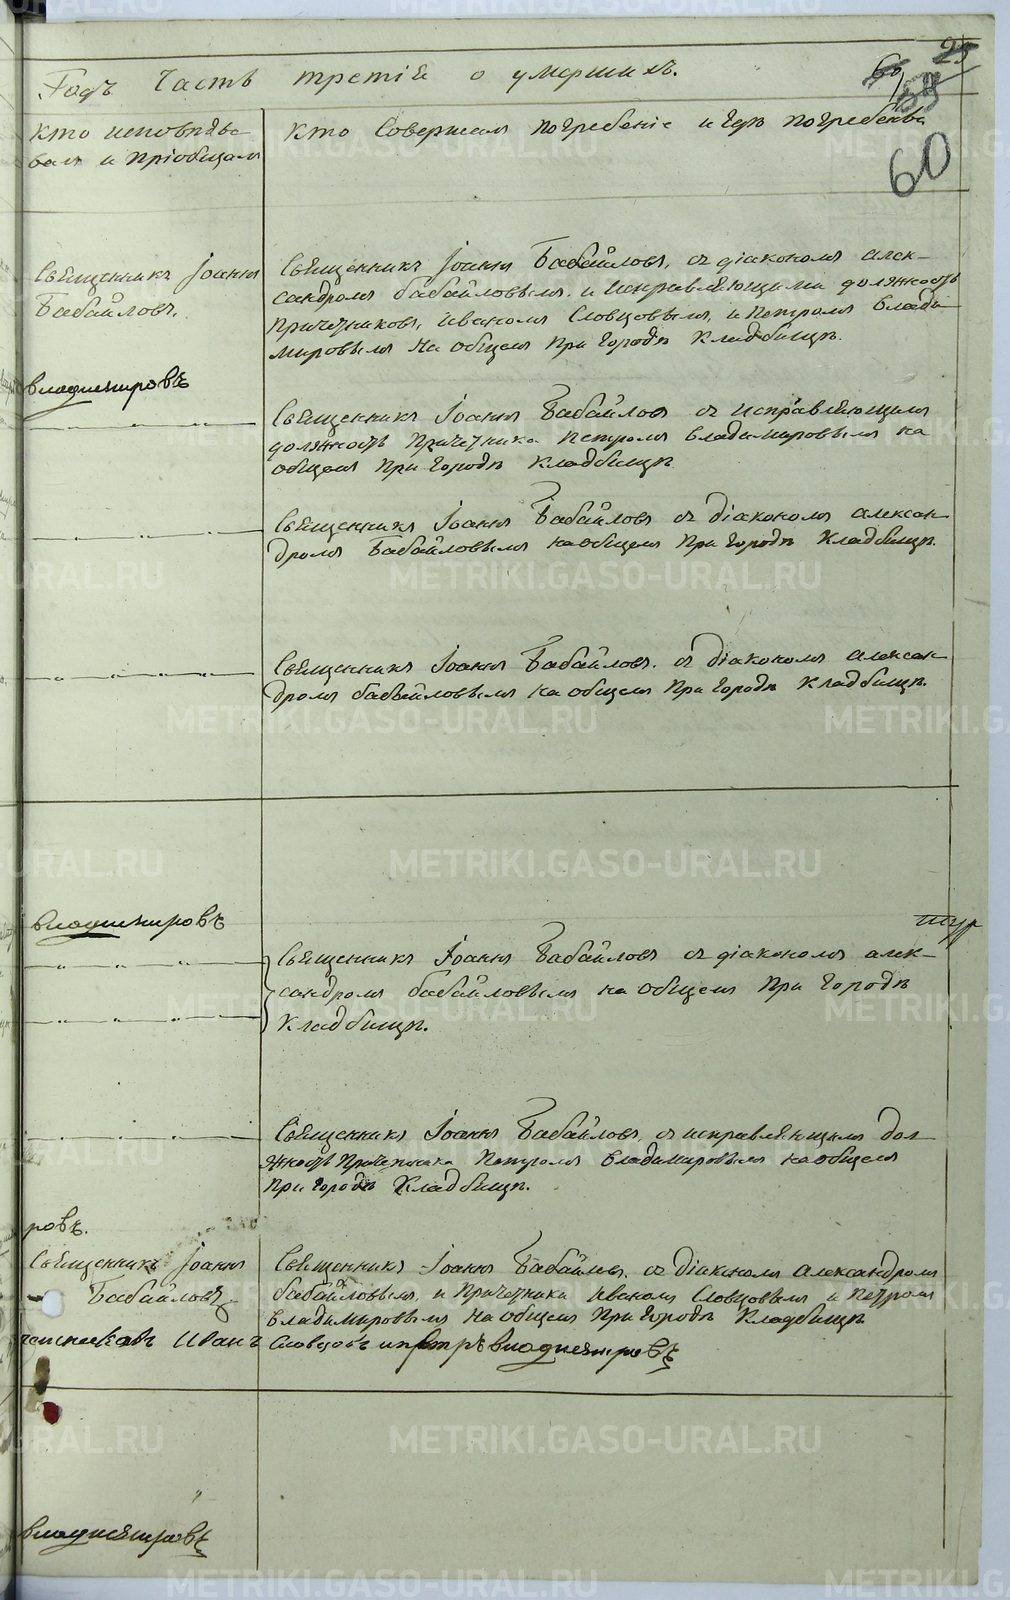 Годъ Часть третія о умершихъ.
25
60
59
60
Кто исповѣды-
валъ и пріобщалъ
Кто Совершалъ погребеніе и гдѣ погребены
Священникъ Іоаннъ
Бабайловъ.
Священникъ Іоаннъ Бабайловъ, съ діакономъ алек-
сандромъ бабайловымъ, и исправляющими должность
причетниковъ, Иваномъ Словцовымъ, и Петромъ Влади-
мировымъ на общемъ при городѣ Кладбищѣ.
Владимировъ
Священникъ Іоаннъ Бабайловъ съ исправляющимъ
должность причетника Петромъ Владимировымъ на
общемъ при городѣ кладбищѣ.
Священникъ Іоаннъ Бабайловъ съ діакономъ алексан-
дромъ Бабайловымъ на общемъ при городѣ Кладбищѣ.
Священникъ Іоаннъ Бабайловъ. съ діакономъ алексан-
дромъ бабайловымъ на общемъ при городѣ Кладбищѣ.
Владимировъ
Священникъ Іоаннъ Бабайловъ съ діакономъ алек-
сандромъ бабайловымъ на общемъ при городѣ
Кладбищѣ.
Священникъ Іоаннъ Бабайловъ, съ исправляющимъ дол-
жность причетника Петромъ Владимировымъ на общемъ
при городѣ Кладбищѣ.
ровъ.
Священникъ Іоаннъ
Бабайловъ
Священникъ Іоаннъ Бабайловъ, съ діакономъ александромъ
бабайловымъ, и причетники Иваномъ Словцовымъ и Петромъ
Владимировымъ на общемъ при городѣ Кладбищѣ
Иванъ Словцовъ ипетръ Владимировъ
Владимировъ
METRIKI.GASO-URAL.RU